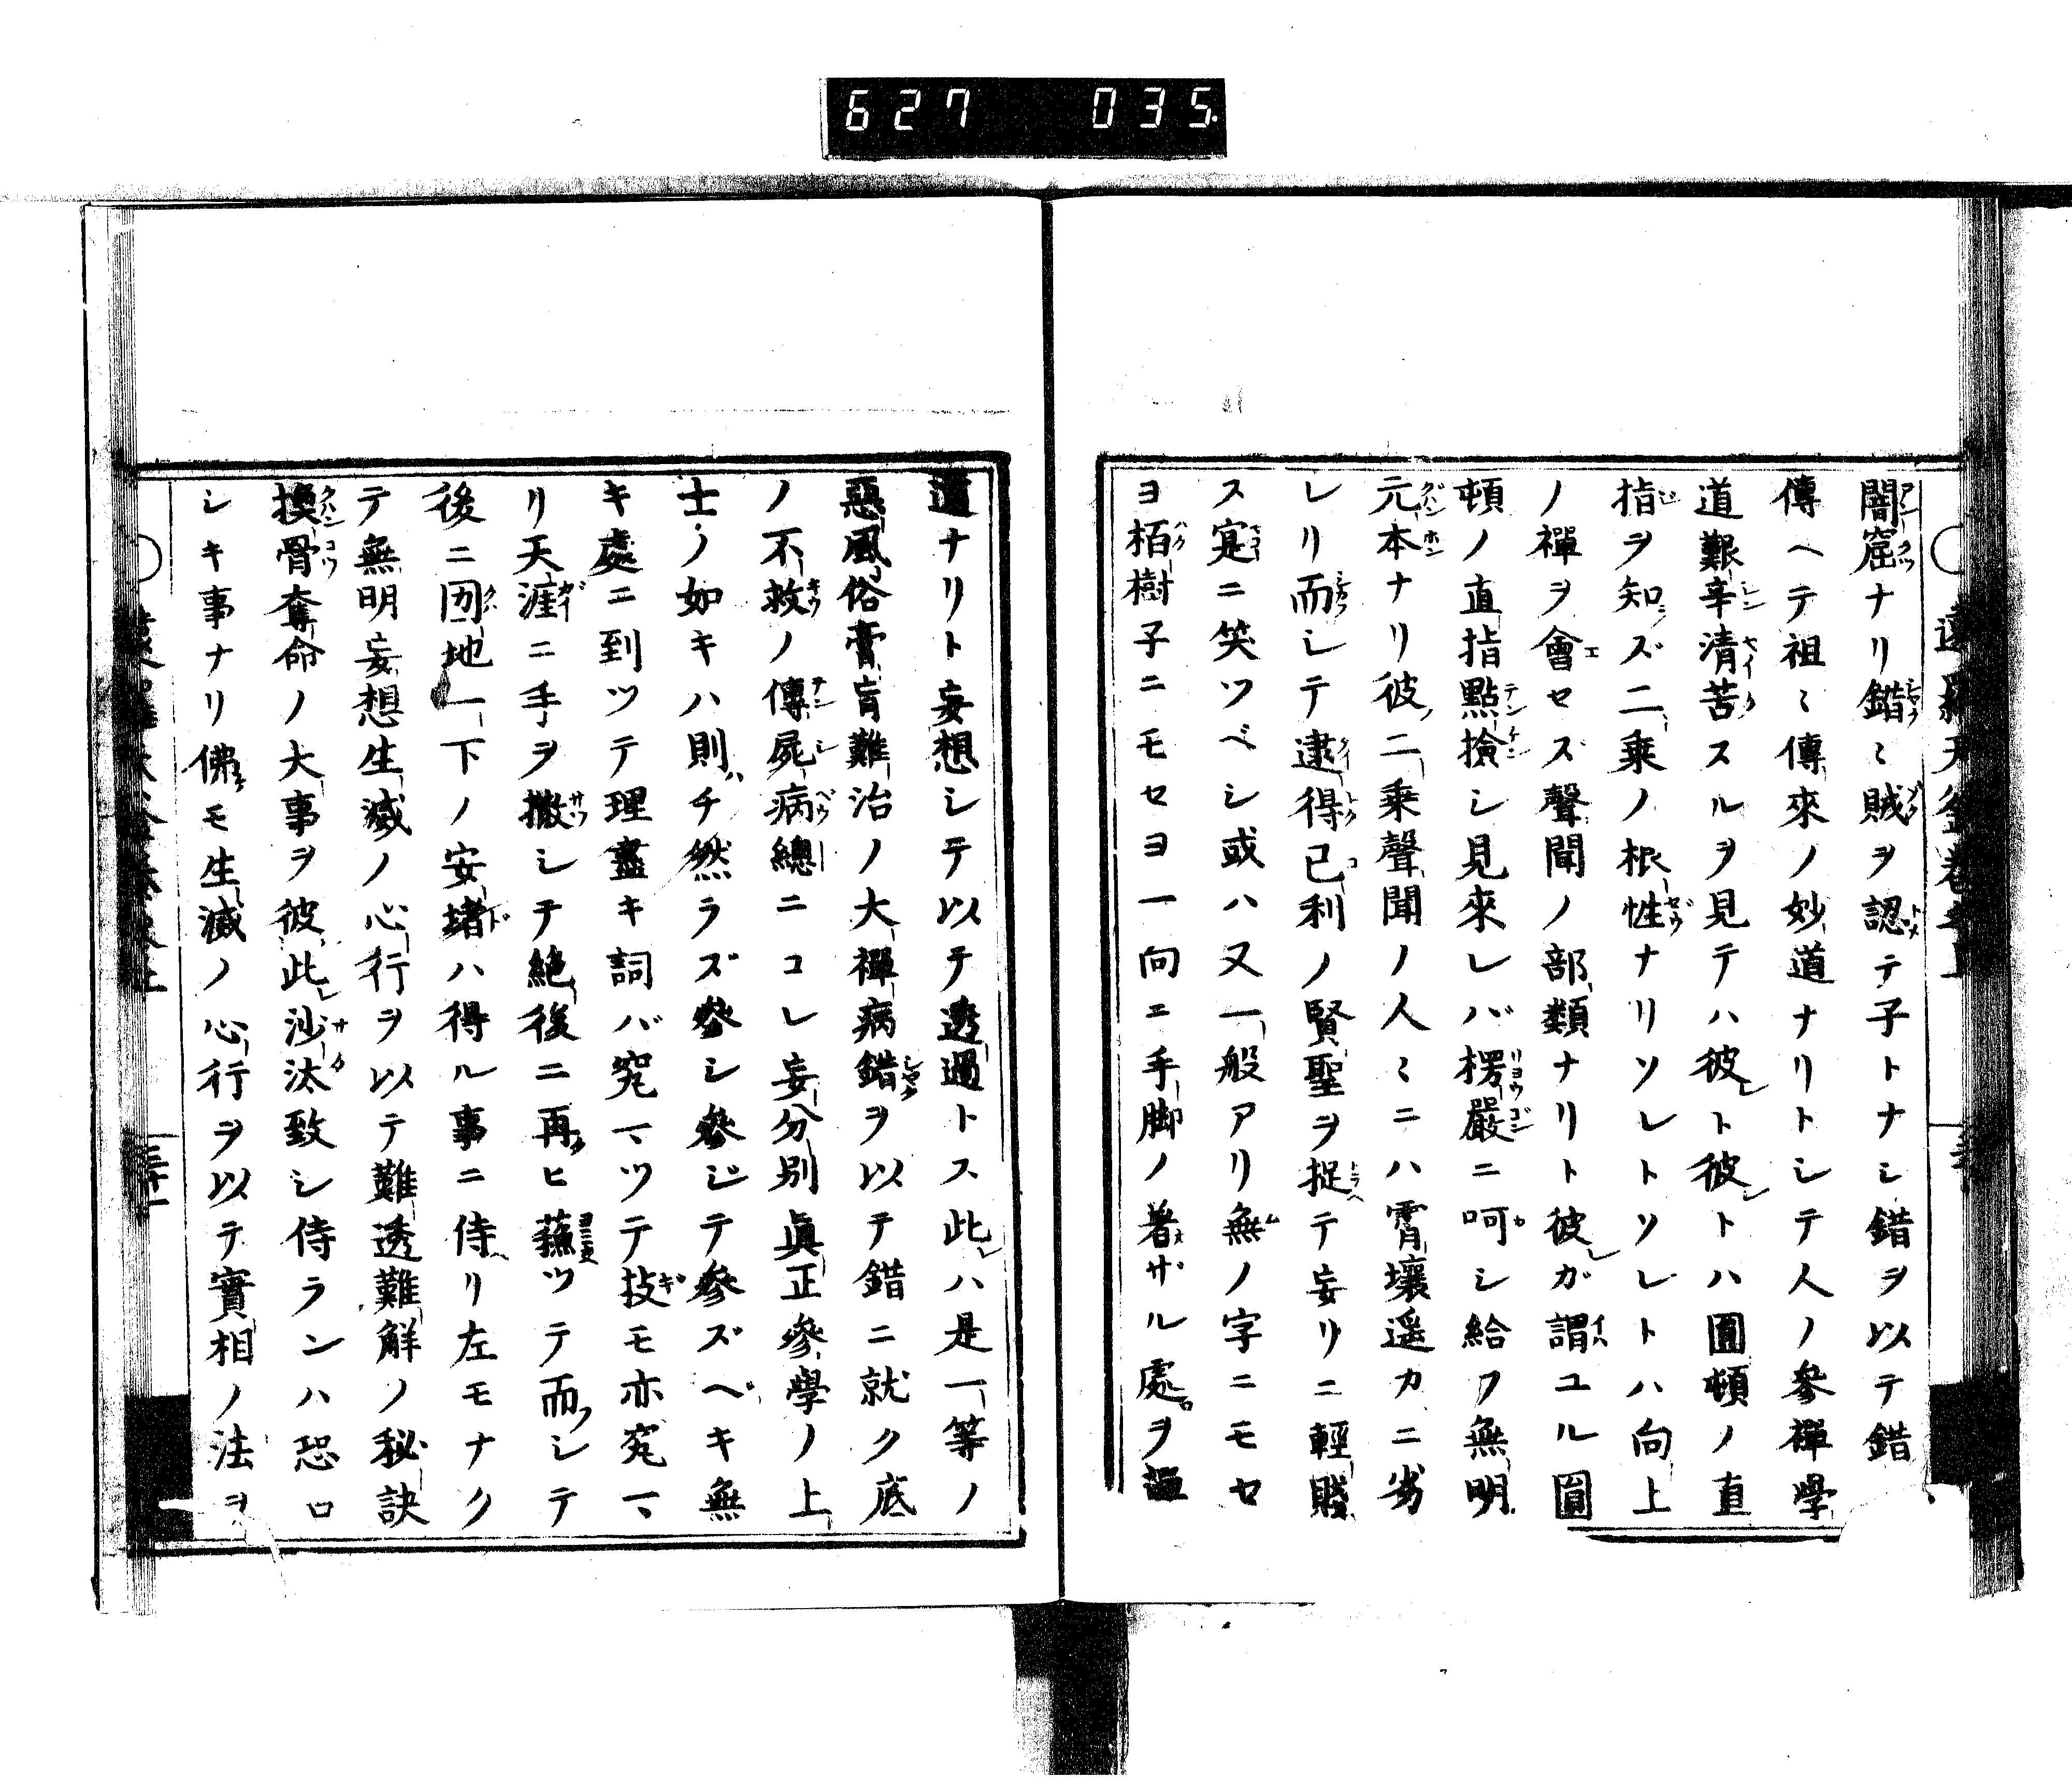 627 035
闇窟ナリ錯〻賊ヲ認テ子トナシ錯ヲ以テ錯
傳ヘテ祖〻傳來ノ妙道ナリトシテ人ノ參禪學
道艱辛清苦スルヲ見テハ彼ト彼トハ圓頓ノ直
指ヲ知ズ二乘ノ根性ナリソレトソレトハ向上
ノ禪ヲ會セズ聲聞ノ部類ナリト彼ガ謂ユル圓
頓ノ直指點撿シ見來レバ楞嚴ニ呵シ給フ無明
元本ナリ彼二乘聲聞ノ人〻ニハ霄壤遥カニ劣
レリ而シテ逮得己利ノ賢聖ヲ捉テ妄リニ輕賤
ス寔ニ笑ツベシ或ハ又一般アリ無ノ字ニモセ
ヨ栢樹子ニモセヨ一向ニ手脚ノ著ザル處ヲ
道ナリト妄想シテ以テ透過トス此ハ是一等ノ
惡風俗膏肓難治ノ大禪病錯ヲ以テ錯ニ就ク底
ノ不救ノ傳屍病總ニコレ妄分別眞正參學ノ上
士ノ如キハ則チ然ラズ參シ參ジテ參ズベキ無
キ處ニ到ツテ理盡キ詞バ究マツテ技モ亦究マ
リ天涯ニ手ヲ撒シテ絶後ニ再ヒ蘓ツテ而シテ
後ニ㘞地一下ノ安堵ハ得ル事ニ侍リ左モナク
テ無明妄想生滅ノ心行ヲ以テ難透難解ノ秘訣
換骨奪命ノ大事ヲ彼此沙汰致シ侍ランハ恐ロ
シキ事ナリ佛モ生滅ノ心行ヲ以テ實相ノ法ヲ